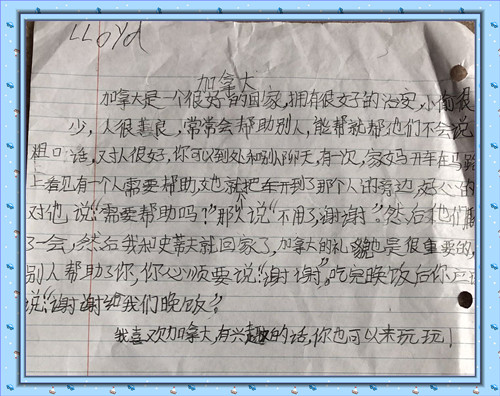 LLoyd
加拿大
加拿大是一个很好的国家,拥有很好的治安,小偷很
少,人很善良,常常会帮助别人,能帮就帮他们不会说
粗口话,对人很好,你可以到处和别人聊天,有一次,家妈开车在马路
上看见有一个人需要帮助,她就把车开到了那个人的旁边,关心的
对他说“需要帮助吗?”那人说“不用了,谢谢”。然后他们聊
了一会,然后我和史蒂夫就回家了,加拿大的礼貌也是很重要的,
别人帮助了你,你必须要说“谢谢”。吃完晚饭后你
说“谢谢给我们晚饭”?
我喜欢加拿大,有兴趣的话,你也可以来玩玩!